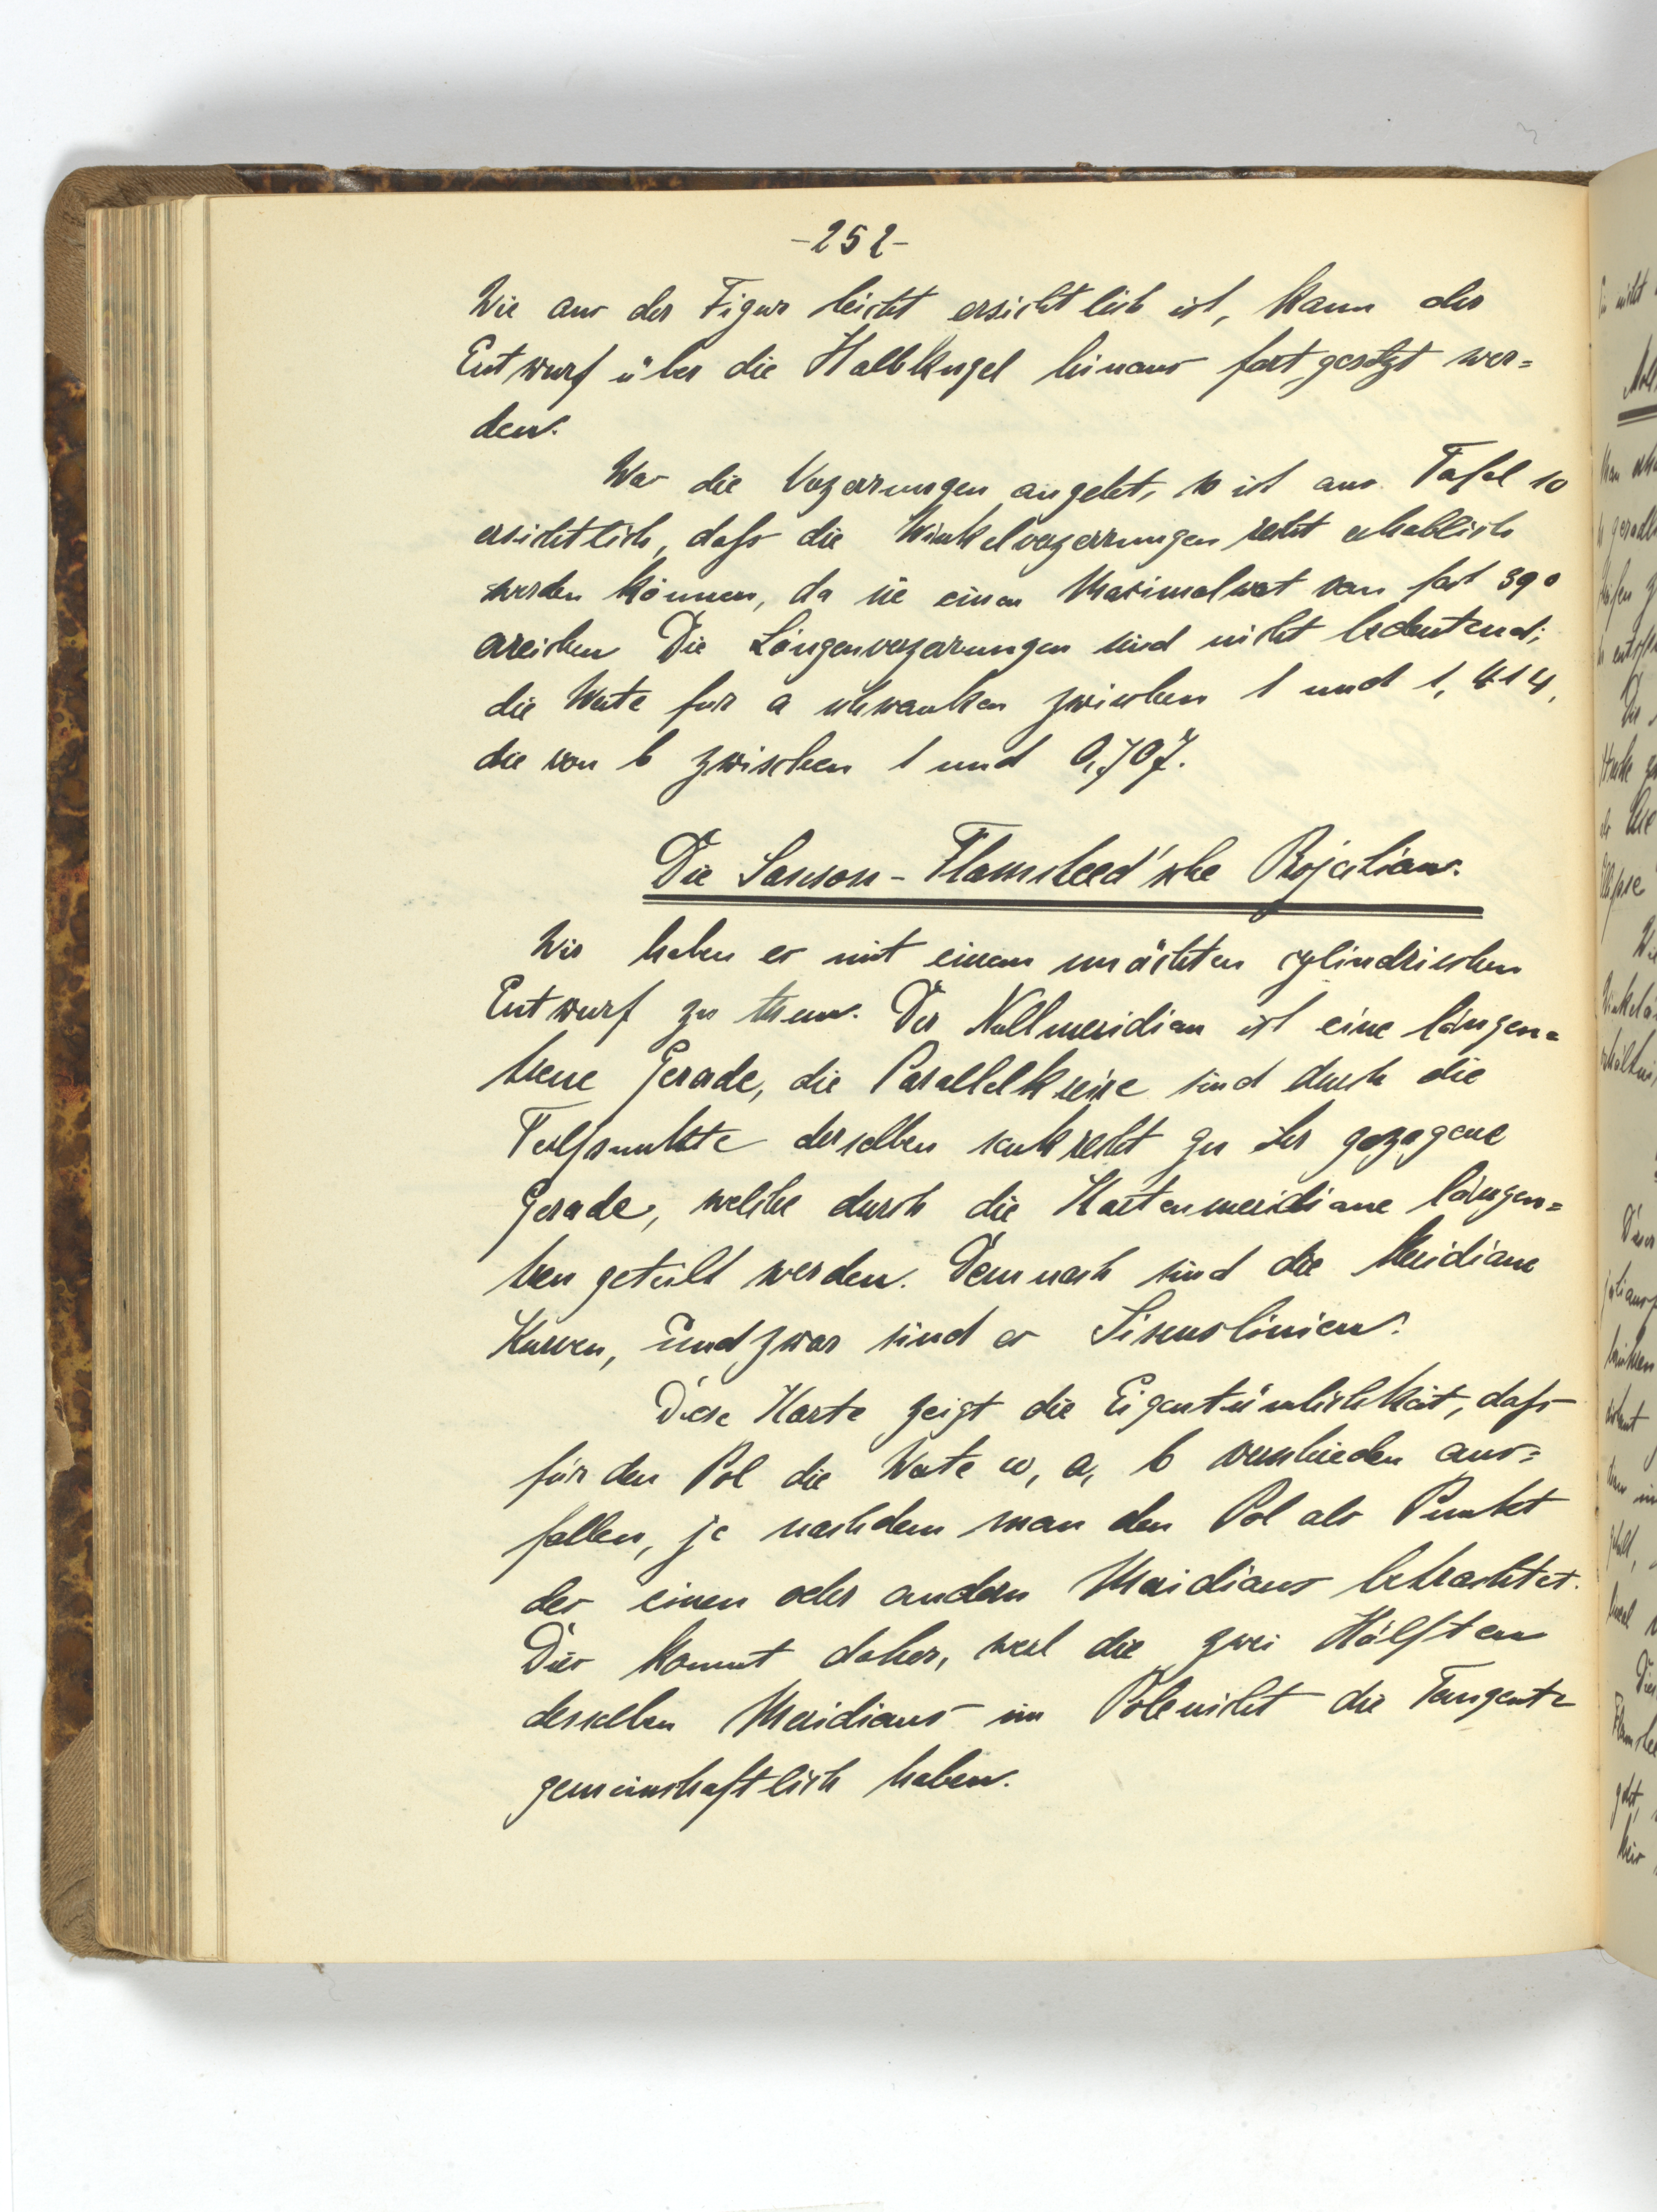 -252-
Wie aus der Figur leicht ersichtlich ist, kann der
Entwurf über die Halbkugel hinaus fortgesetzt wer=
den.
Was die Verzerrungen angeht, so ist aus Tafel 10
ersichtlich, dass die Winkelverzerrungen recht erheblich
werden können, da sie einen Maximalwert von fast 39°
erreichen. Die Längenverzerrungen sind nicht bedeutend;
die Werte für a schwanken zwischen 1 und 1,414,
die von b zwischen 1 und 0,707.
Die Sanson-Flamsteed'sche Projection.
Wir haben es mit einem unächten cylindrischen
Entwurf zu thun. Der Nullmeridian ist eine längen=
treue Gerade, die Parallelkreise sind durch die
Teilpunkte derselben senkrecht zu ihr gezogene
Gerade, welche durch die Kartenmeridiane längen=
treu geteilt werden. Demnach sind die Meridiane
Kurven, und zwar sind es Sinuslinien.
Diese Karte zeigt die Eigentümlichkeit, dass
für den Pol die Werte ω, a, b verschieden aus=
fallen, je nachdem man den Pol als Punkt
des einen oder andern Meridians betrachtet.
Dies kommt daher, weil die zwei Hälften
desselben Meridians im Pole nicht die Tangente
gemeinschaftlich haben.